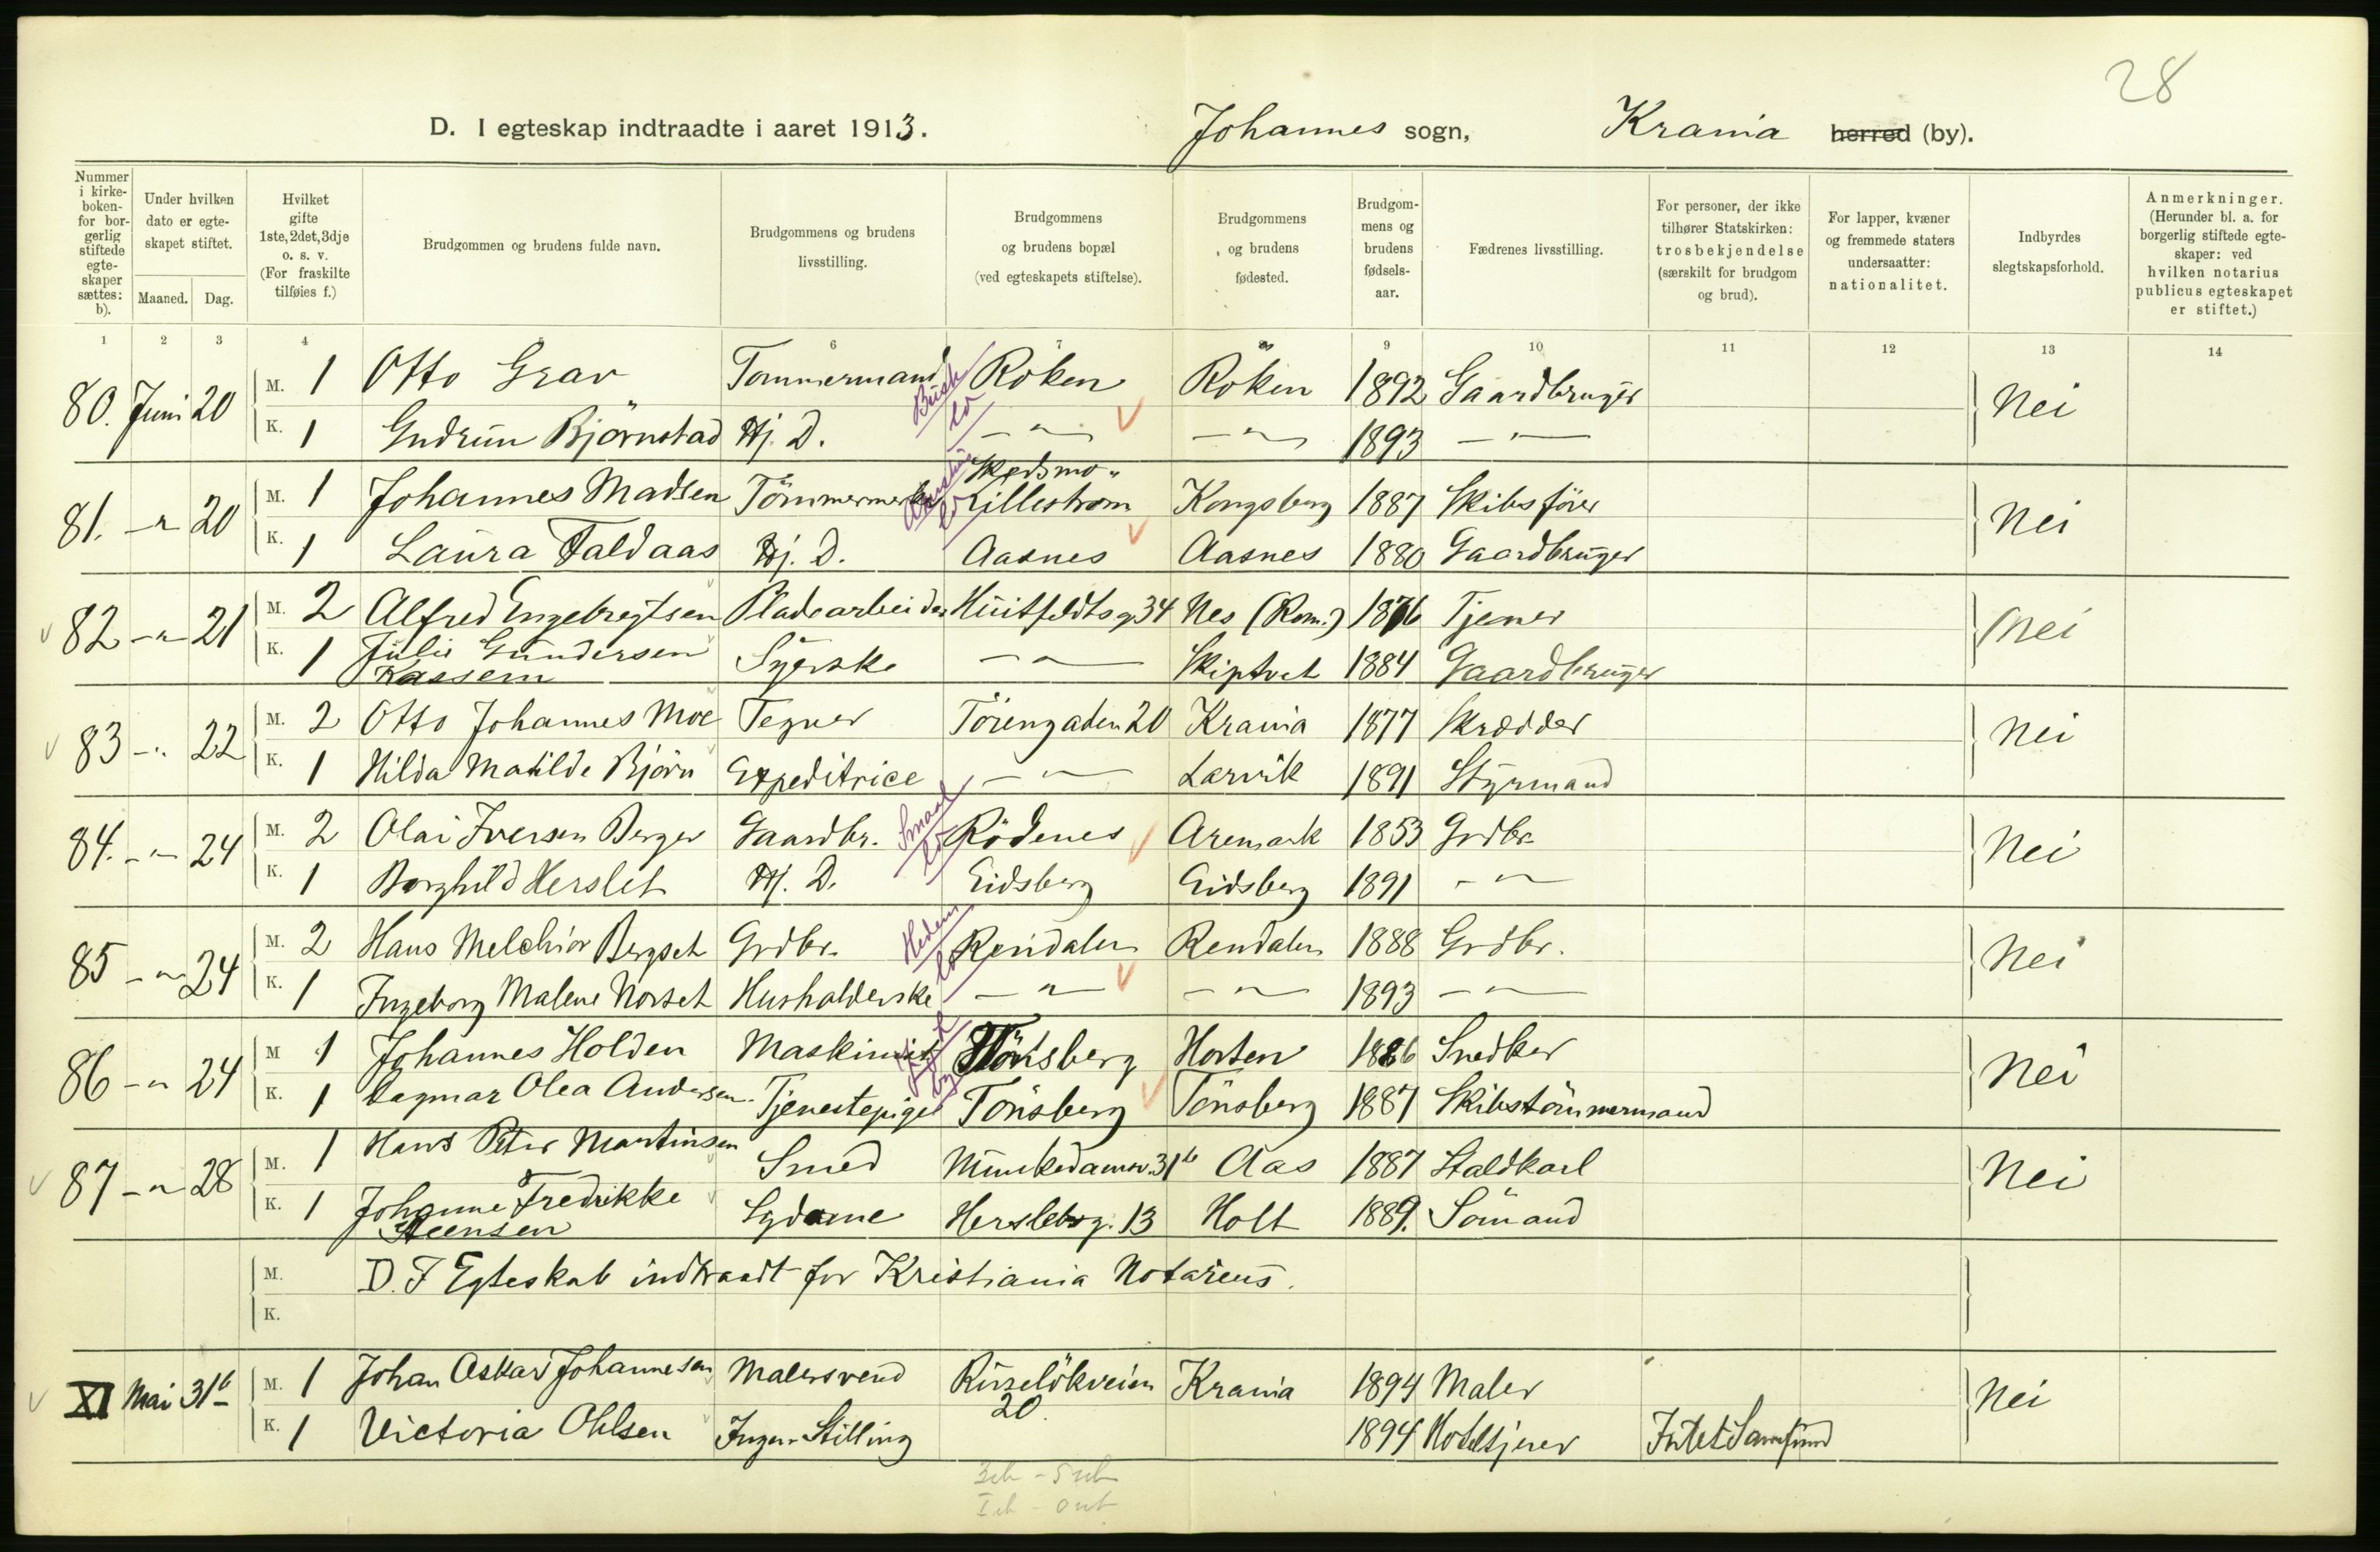 28
D. I egteskap indtraadte i aaret 1913. Johannes sogn, Krania herred (by).
Nummer i kirkeboken- for borgerlig stiftede egteskaper sættes: b).
Under hvilken dato er egteskapet stiftet.
Maaned. Dag.
Hvilket gifte 1ste, 2det, 3dje o. s. v. (For fraskilte tilføies f.)
Brudgommen og brudens fulde navn.
Brudgommens og brudens livsstilling.
Brudgommens og brudens bopæl (ved egteskapets stiftelse).
Brudgommens og brudens fødested.
Brudgommens og brudens fødselsaar.
Fædrenes livsstilling.
For personer, der ikke tilhører Statskirken: trosbekjendelse (særskilt for brudgom og brud).
For lapper, kvæner og fremmede staters undersaatter: nationalitet.
Indbyrdes slegtskapsforhold.
Anmerkninger. (Herunder bl. a. for borgerlig stiftede egteskaper: ved hvilken notarius publicus egteskapet er stiftet.)
1 2 3 4 6 7 9 10 11 12 13 14
80. Juni 20 M. 1 Otto Grav Tømmermand Røken Røken 1892 Gaardbruger Nei
K. 1 Gudrun Bjørnstad Hj. D. — " — — " — 1893 — " —
Busk ld
81. — " 20 M. 1 Johannes Madsen Tömmermerker Skedsmo Lillestrøm Kongsberg 1887 Skibsförer Nei
K. 1 Laura Faldaas Hj. D. Aasnes Aasnes 1880 Gaardbruger
82 — " — 21 M. 2 Alfred Engebregtsen Pladearbeider Huitfeldtsg 34 Nes (Rom.) 1876 Tjener Nei
K. 1 Julie Gundersen Kassem Syerske — " — Skiptvet 1884 Gaardbruger
83 — " 22 M. 2 Otto Johannes Moe Tegner Törengaden 20 Krania 1877 Skrædder Nei
K. 1 Hilda Matilde Bjørn Expeditrice — " — Larvik 1891 Styrmand
84. — " — 24 M. 2 Olai Iversen Berger Gaardbr. Rödenes Aremark 1853 Grdbr. Nei
K. 1 Borghild Herslet Hj. D. Eidsberg Eidsberg 1891 — " —
Smaal ld
85 — " — 24 M. 2 Hans Melchior Bergset Grdbr. Rendalen Rendalen 1888 Grdbr. Nei
K. 1 Ingeborg Malene Norset Husholderske — " — — " — 1893 — " —
Hedem ld
86 — " 24 M 1 Johannes Holden Maskinist Tönsberg Horten 1886 Snedker Nei
K. 1 Dagmar Olea Andersen Tjenestepige Tönsberg Tönsberg 1887 Skibstömmermand
87 — " — 28 M. 1 Hans Peter Martinsen Smed Munkedamsv. 31b Aas 1887 Staldkarl Nei
K. 1 Johanne Fredrikke Steensen Sydame Herslebsg. 13 Holt 1889. Sömand
M. D. I Egteskab indtraadt for Kristiania Notarius.
K.
XI Mai 31te M. 1 Johan Oskar Johannesen Malersvend Ruselökveien 20 Krania 1894 Maler Nei
K. 1 Victoria Ohlsen Ingen Stilling 1894 Hoteltjener Intet Samfund